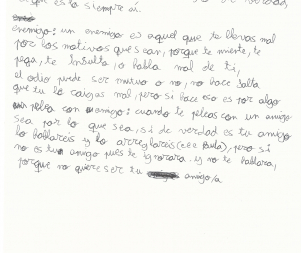 es lo siempre así.
enemigo: un enemigo es aquel que te llevas mal
por los motivos que sean, porque te miente, te
pega, te insulta, o habla mal de ti,
el odio puede ser mutuo o no, no hace falta
que tu lo caigas mal, pero si hace eso es por algo
pelea con amigo: cuando te peleas con un amigo
sea por lo que sea, si de verdad es tu amigo
lo hablareis y lo arreglareis (eee Paula), pero si
no es tu amigo pues te ignorara y no te hablara,
porque no quiere ser tu amigo/a